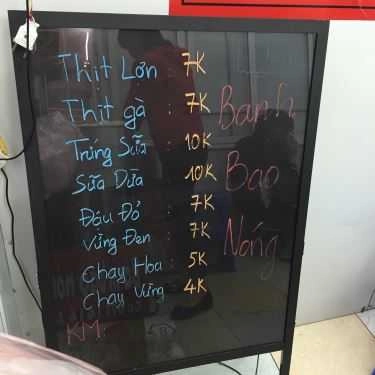 Thịt Lơn : 7K
Thịt gà : 7K
Trứng Sữa : 10K
Sữa Dừa : 10K
Đậu Đỏ : 7K
Vừng Đen : 7K
Chay Hoa : 5K
Chay Vừng : 4K
KM:
Banh
Bao
Nóng